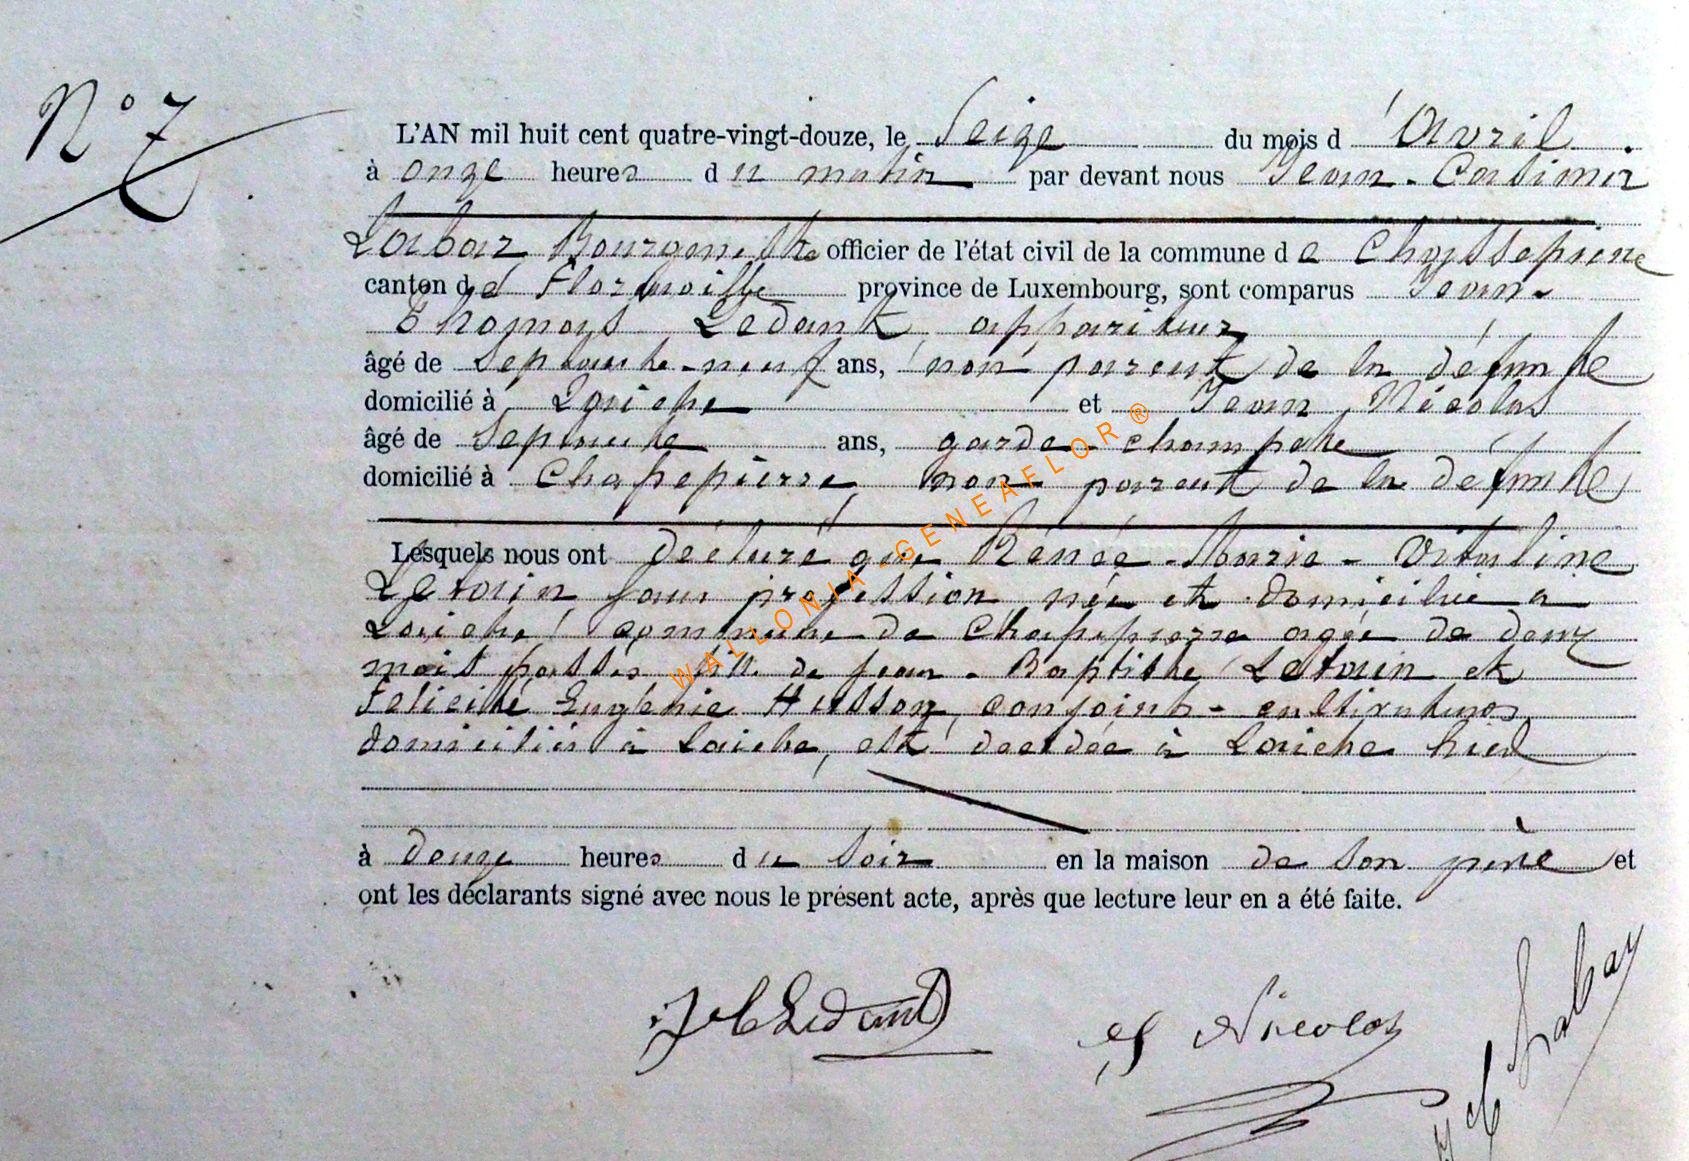 N° 7
L'AN mil huit cent quatre-vingt-douze, le Seize du mois d'Avril
à onze heures du matin par devant nous Jean-Casimir
Labar Bourgmestre officier de l'état civil de la commune de Chassepierre
canton de Florenville province de Luxembourg, sont comparus Jean-
Thomas Ledant, appariteur
âgé de septante-neuf ans, non parent de la défunte
domicilié à Laiche et Jean Nicolas
âgé de septante ans, garde-champetre
domicilié à Chassepierre, non parent de la défunte
Lesquels nous ont déclaré que Rénée-Marie-Vitaline
Lefouin sans profession née et domiciliée a
Laiche, commune de Chassepierre agée de deux
mois passés, fille de Jean-Baptiste Lefouin et
Felicité Eugénie Husson, conjoints-cultivateurs
domiciliés à Laiche, est decédée à Laiche hier
à douze heures du soir en la maison de son père et
ont les déclarants signé avec nous le présent acte, après que lecture leur en a été faite.
Ledant
Nicolas
Labar
WALLONIA-GENEAFLOR®